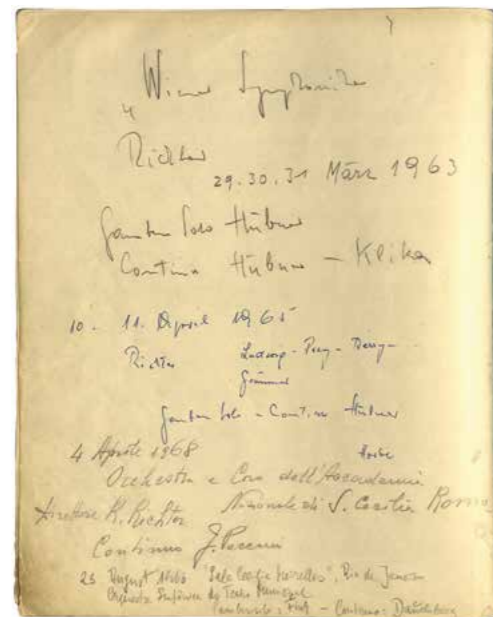 „ Wiener Symphoniker
Richter
29. 30. 31 März 1963
Gamben Solo Hübner
Contino Hübner – Klika
10. - 11. April 1965
Richter Ludwig - Prey -
Gamben Solo - Contino Hübner
4 Aprile 1968
Orchestra e Coro dell'Accademia
Direttore K. Richter Nazionale di S. Cecilia Roma
Continuo
25 August "Sala Cecilia Meirelles", Rio de Janeiro
Orquestra Sinfônica do Teatro Municipal
- Continuo: